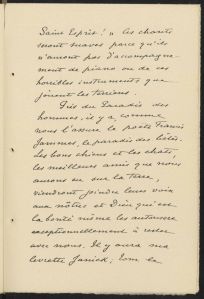 Saint Esprit! "Les chants
seront suaves parce qu'ils
n'auront pas d'accompagne-
ment de piano ou de ces
horribles instruments que
jouent les terriens.
Près du Paradis des
hommes, il y a, comme
nous l'assure le poète Francis
Jammes, le paradis des bêtes.
les bons chiens et les chats
les meilleurs amis que nous
aurons eu sur la terre,
viendront joindre leurs voix
aux nôtres et Dieu qui est
la bonté même les autorisera
exceptionnellement à rester
avec nous. Il y aura ma
levrette Janick; Tom le